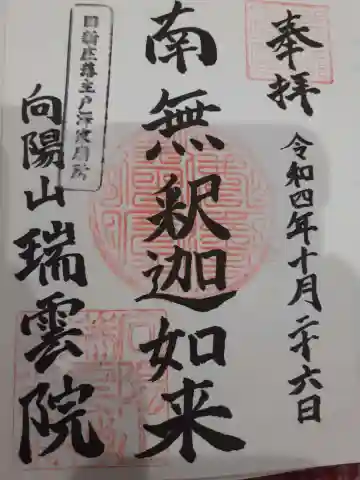 奉拝
令和四年十月二十六日
南無釈迦如来
向陽山瑞雲院